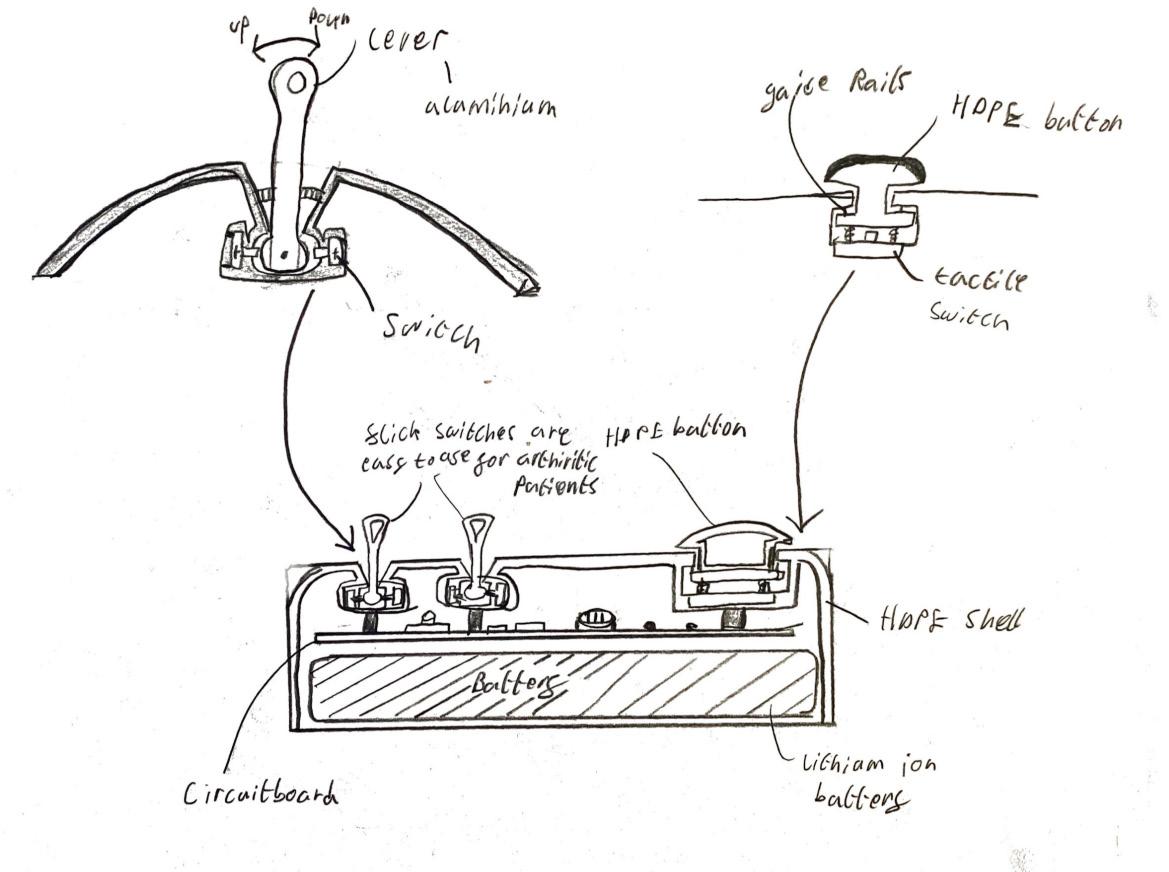 up
Down
Lever
aluminium
Switch
guide Rails
HDPE button
tactile
Switch
Slick switches are
easy to use for arthiritic
Patients
HDPE button
HDPE Shell
Battery
Circuitboard
Lithium ion
battery